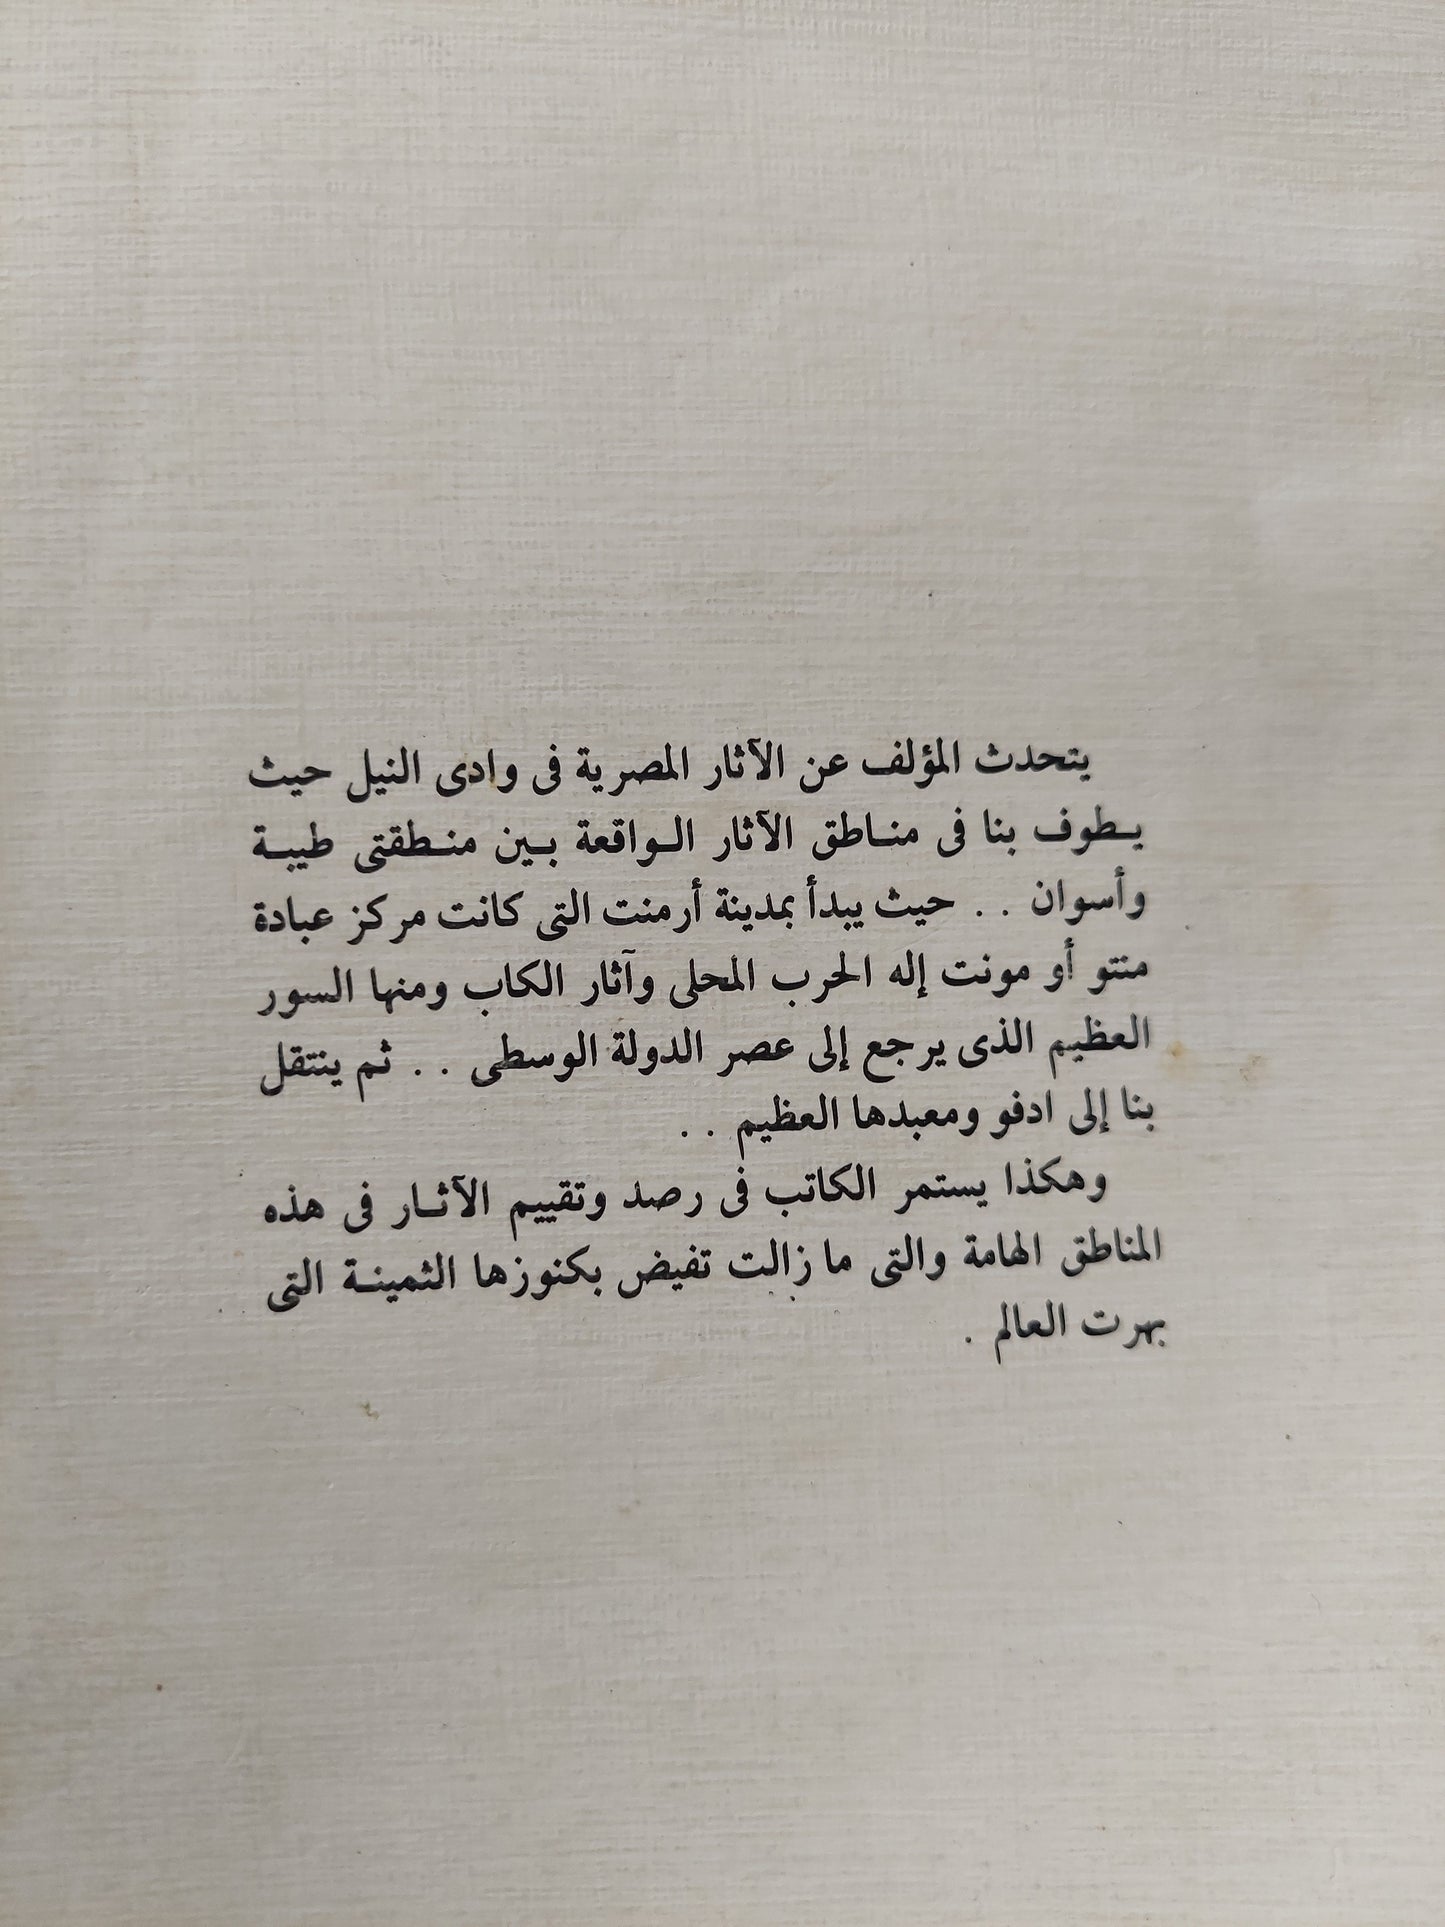 يتحدث المؤلف عن الآثار المصرية فى وادى النيل حيث
يـطوف بنا فى منـاطق الآثار الـواقعة بـين منـطقتى طيبـة
وأسوان . . حيث يبدأ بمدينة أرمنت التى كانت مركز عبادة
منتو أو مونت إله الحرب المحلى وآثار الكاب ومنها السور
العظيم الذى يرجع إلى عصر الدولة الوسطى . . ثم ينتقل
بنا إلى ادفو ومعبدها العظيم . .
وهكذا يستمر الكاتب فى رصد وتقييم الآثـار فى هذه
المناطق الهامة والتى ما زالت تفيض بكنوزها الثمينـة التى
بهرت العالم .